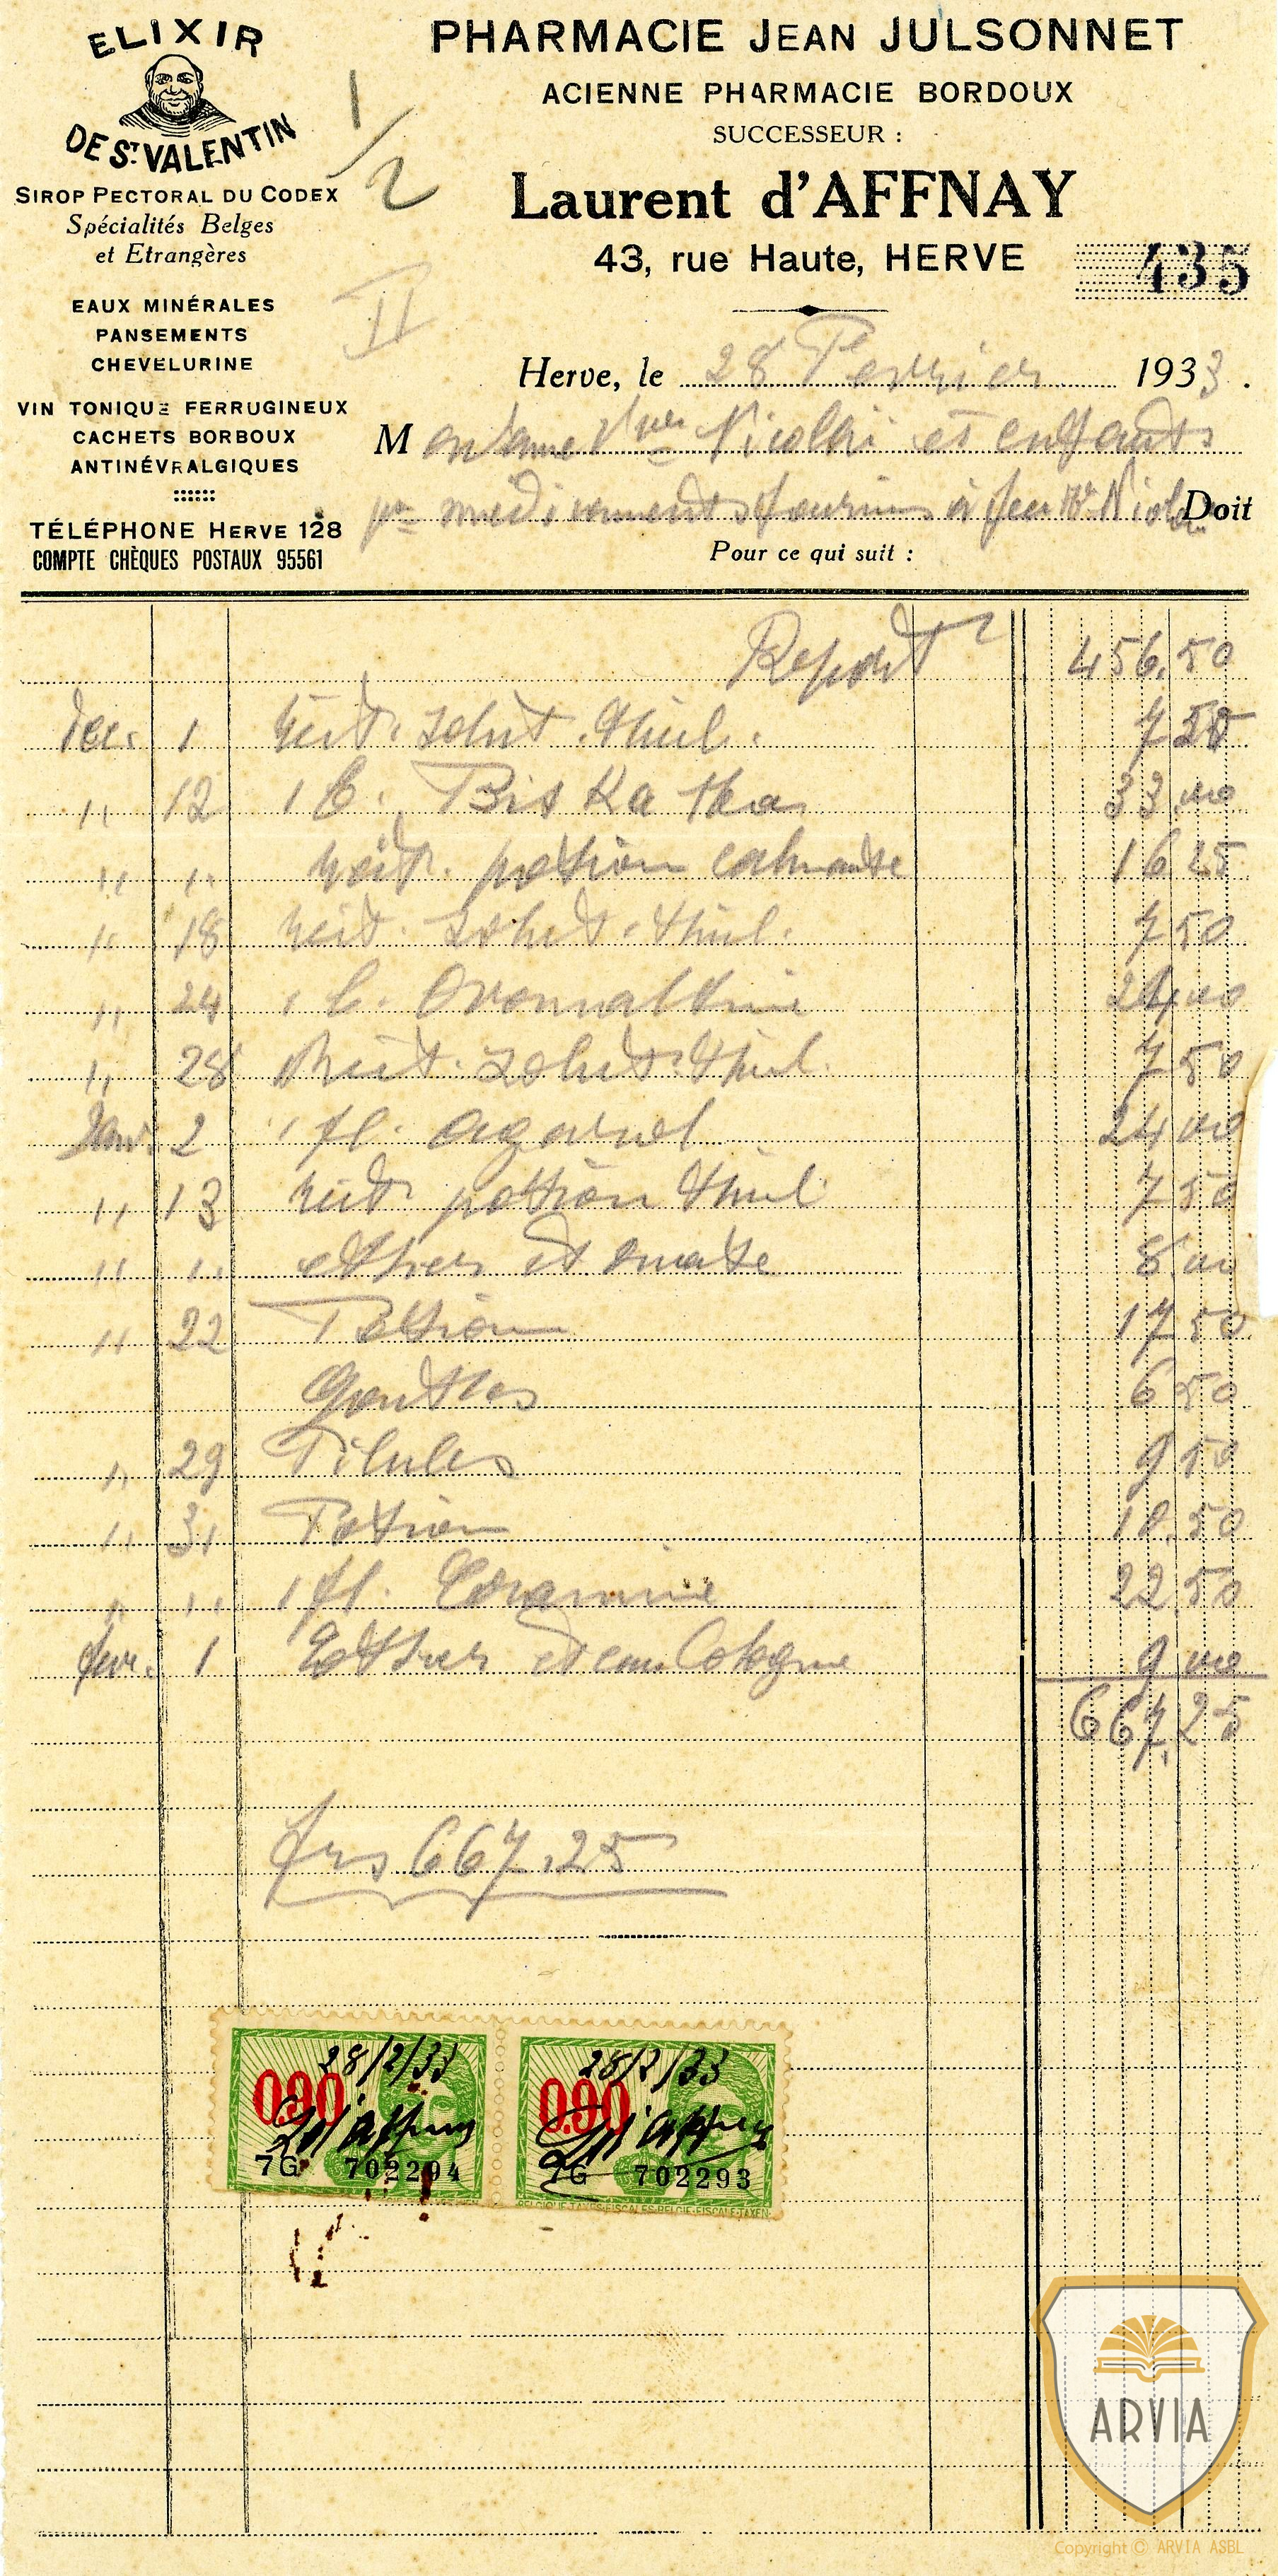 ELIXIR
DE ST VALENTIN
SIROP PECTORAL DU CODEX
Spécialités Belges
et Etrangères
EAUX MINÉRALES
PANSEMENTS
CHEVELURINE
VIN TONIQUE FERRUGINEUX
CACHETS BORBOUX
ANTINÉVRALGIQUES
TÉLÉPHONE HERVE 128
COMPTE CHÈQUES POSTAUX 95561
1/2
II
PHARMACIE JEAN JULSONNET
ACIENNE PHARMACIE BORDOUX
SUCCESSEUR :
Laurent d'AFFNAY
43, rue Haute, HERVE
435
Herve, le 28 Fevrier 1933.
Madame Vve Nicolaï et enfants
pr médicaments fournis à feu Mr Nicolaï Doit
Pour ce qui suit :
Report 456.50
Dec. 1 reit. solut. thiol. 7 50
" 12 1 B. Bis Ka Ma 33
" " reit. potion calmante 16 25
" 18 reit. solut. thiol. 7 50
" 24 1 B. Ovomaltine 24.00
" 28 Reit. solut. thiol. 7 50
Janv. 2 1 fl. agarol 24 00
" 13 reit potion thiol 7 50
" " ether et ouate 8 00
" 22 Potion 17 50
Gouttes 6 50
" 29 Pilules 9 50
" 31 Potion 10.50
" " 1 fl. Coramine 22.50
fevr. 1 Ether et eau Cologne 9 00
667,25
frs 667,25
28/2/33
0.90
L d'Affnay
7G 702294
28/2/33
0.90
L d'Affnay
7G 702293
BELGIQUE-TAXES-FISCALES-BELGIE-FISCALE-TAXEN
ARVIA
Copyright © ARVIA ASBL